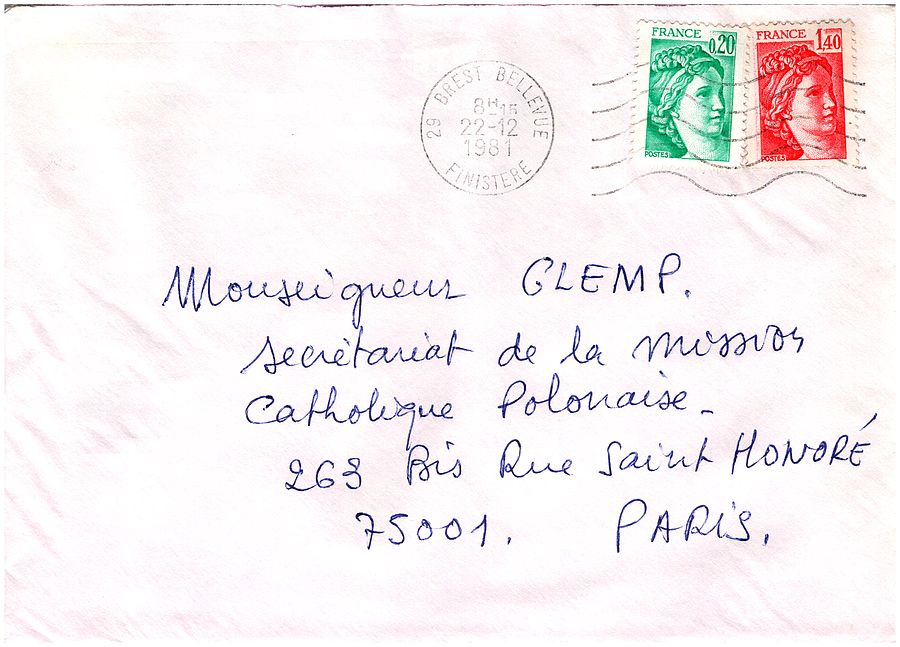 FRANCE 0,20
POSTES
FRANCE 1,40
POSTES
29 BREST BELLEVUE
8H15
22-12
1981
FINISTERE
Monseigneur GLEMP.
Secrétariat de la mission
Catholique Polonaise -
263 Bis Rue Saint HONORÉ
75001. PARIS.